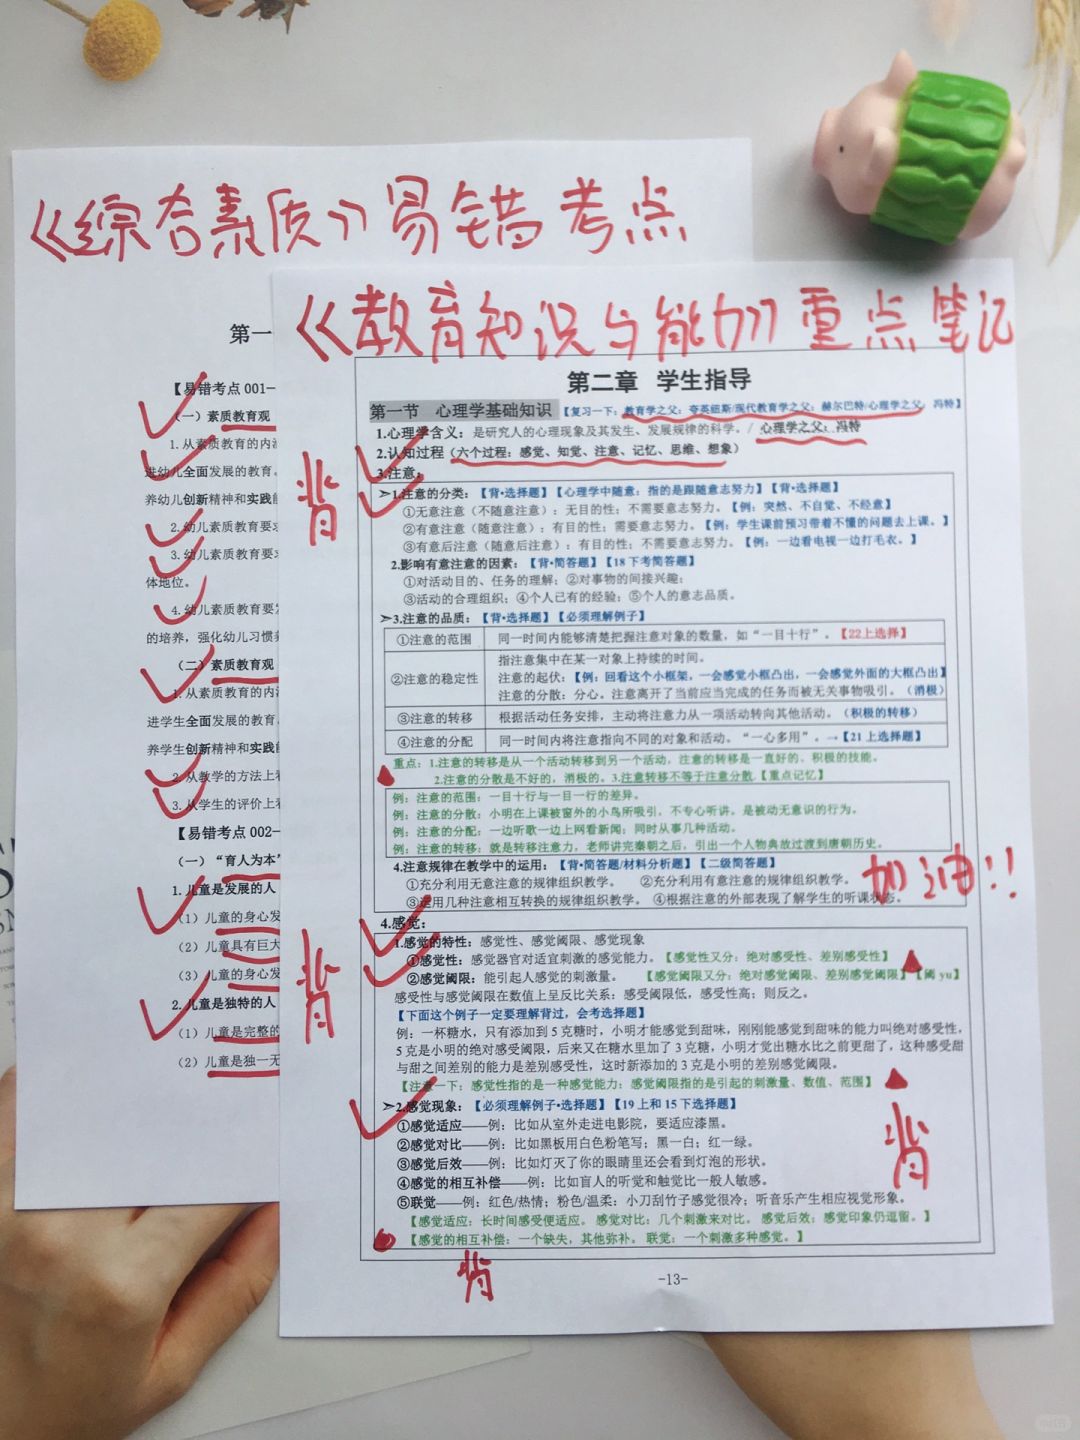 《综合素质》易错考点
第一
【易错考点 001-
（一）素质教育观
1.从素质教育的内涵
进幼儿全面发展的教育。
养幼儿创新精神和实践能
2.幼儿素质教育要求
3.幼儿素质教育要求
体地位。
4.幼儿素质教育要
的培养，强化幼儿习惯养
（二）素质教育观
1.从素质教育的内涵
进学生全面发展的教育。
养学生创新精神和实践能
2.从教学的方法上
3.从学生的评价上
【易错考点 002-
（一）“育人为本”
1.儿童是发展的人
（1）儿童的身心发
（2）儿童具有巨大
（3）儿童的身心发
2.儿童是独特的人
（1）儿童是完整的
（2）儿童是独一无
《教育知识与能力》重点笔记
第二章 学生指导
第一节 心理学基础知识【复习一下：教育学之父：夸美纽斯/现代教育学之父：赫尔巴特/心理学之父：冯特】
1.心理学含义：是研究人的心理现象及其发生、发展规律的科学。/ 心理学之父：冯特
2.认知过程（六个过程：感觉、知觉、注意、记忆、思维、想象）
背
3.注意：
➢1.注意的分类：【背•选择题】【心理学中随意：指的是跟随意志努力】【背•选择题】
①无意注意（不随意注意）：无目的性；不需要意志努力。【例：突然、不自觉、不经意】
②有意注意（随意注意）：有目的性；需要意志努力。【例：学生课前预习带着不懂的问题去上课。】
③有意后注意（随意后注意）：有目的性；不需要意志努力。【例：一边看电视一边打毛衣。】
2.影响有意注意的因素：【背•简答题】【18 下考简答题】
①对活动目的、任务的理解；②对事物的间接兴趣；
③活动的合理组织；④个人已有的经验；⑤个人的意志品质。
➢3.注意的品质：【背•选择题】【必须理解例子】
①注意的范围 同一时间内能够清楚把握注意对象的数量，如“一目十行”。【22上选择】
②注意的稳定性 指注意集中在某一对象上持续的时间。
注意的起伏：【例：回看这个小框架，一会感觉小框凸出，一会感觉外面的大框凸出】
注意的分散：分心。注意离开了当前应当完成的任务而被无关事物吸引。（消极）
③注意的转移 根据活动任务安排，主动将注意力从一项活动转向其他活动。（积极的转移）
④注意的分配 同一时间内将注意指向不同的对象和活动。“一心多用”。→【21 上选择题】
重点：1.注意的转移是从一个活动转移到另一个活动，注意的转移是一直好的、积极的技能。
2.注意的分散是不好的，消极的。3.注意转移不等于注意分散【重点记忆】
例：注意的范围：一目十行与一目一行的差异。
例：注意的分散：小明在上课被窗外的小鸟所吸引，不专心听讲。是被动无意识的行为。
例：注意的分配：一边听歌一边上网看新闻；同时从事几种活动。
例：注意的转移：就是转移注意力，老师讲完秦朝之后，引出一个人物典故过渡到唐朝历史。
4.注意规律在教学中的运用：【背•简答题/材料分析题】【二级简答题】
①充分利用无意注意的规律组织教学。 ②充分利用有意注意的规律组织教学。
③运用几种注意相互转换的规律组织教学。 ④根据注意的外部表现了解学生的听课状态。
加油!!
4.感觉：
背
1.感觉的特性：感觉性、感觉阈限、感觉现象
①感觉性：感觉器官对适宜刺激的感觉能力。【感觉性又分：绝对感受性、差别感受性】
②感觉阈限：能引起人感觉的刺激量。【感觉阈限又分：绝对感觉阈限、差别感觉阈限】【阈 yu】
感受性与感觉阈限在数值上呈反比关系：感受阈限低，感受性高；则反之。
【下面这个例子一定要理解背过，会考选择题】
例：一杯糖水，只有添加到 5 克糖时，小明才能感觉到甜味，刚刚能感觉到甜味的能力叫绝对感受性，
5 克是小明的绝对感受阈限，后来又在糖水里加了 3 克糖，小明才觉出糖水比之前更甜了，这种感受甜
与甜之间差别的能力是差别感受性，这时新添加的 3 克是小明的差别感觉阈限。
【注意一下：感觉性指的是一种感觉能力；感觉阈限指的是引起的刺激量、数值、范围】
➢2.感觉现象：【必须理解例子•选择题】【19 上和 15 下选择题】
①感觉适应——例：比如从室外走进电影院，要适应漆黑。
②感觉对比——例：比如黑板用白色粉笔写；黑一白；红一绿。
③感觉后效——例：比如灯灭了你的眼睛里还会看到灯泡的形状。
④感觉的相互补偿——例：比如盲人的听觉和触觉比一般人敏感。
⑤联觉——例：红色/热情；粉色/温柔；小刀刮竹子感觉很冷；听音乐产生相应视觉形象。
背
【感觉适应：长时间感受便适应。 感觉对比：几个刺激来对比。 感觉后效：感觉印象仍逗留。】
【感觉的相互补偿：一个缺失，其他弥补。 联觉：一个刺激多种感觉。】
背
-13-